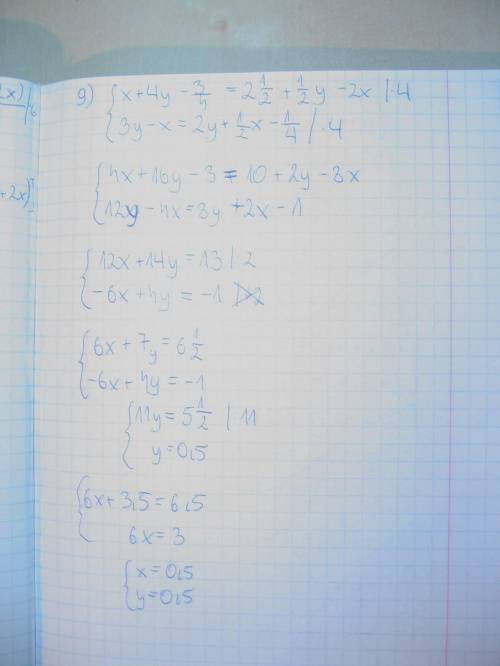 2x) | 6
9) { x + 4y - 3/4 = 2 1/2 + 1/2 y - 2x | ·4
{ 3y - x = 2y + 1/2 x - 1/4 | ·4
+ 2x)
{ 4x + 16y - 3 = 10 + 2y - 8x
{ 12y - 4x = 8y + 2x - 1
{ 12x + 14y = 13 | : 2
{ -6x + 4y = -1
{ 6x + 7y = 6 1/2
{ -6x + 4y = -1
{ 11y = 5 1/2 | : 11
{ y = 0,5
{ 6x + 3,5 = 6,5
{ 6x = 3
{ x = 0,5
{ y = 0,5